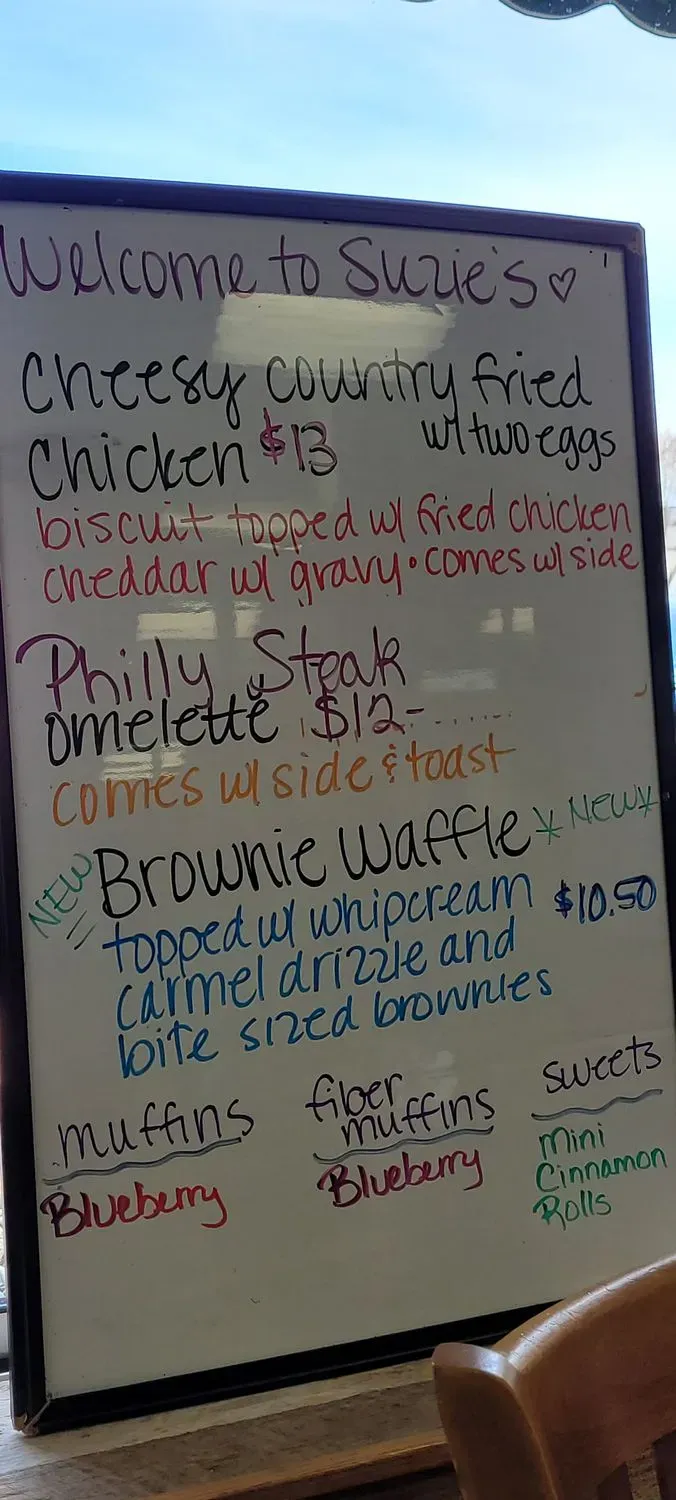 Welcome to Suzie's ♡
Cheesy country fried
Chicken $13 w/ two eggs
biscuit topped w/ fried chicken
cheddar w/ gravy • comes w/ side
Philly Steak
omelette $12-
comes w/ side & toast
NEW Brownie Waffle * NEW *
topped w/ whipcream $10.50
carmel drizzle and
bite sized brownies
muffins
Blueberry
fiber
muffins
Blueberry
sweets
Mini
Cinnamon
Rolls